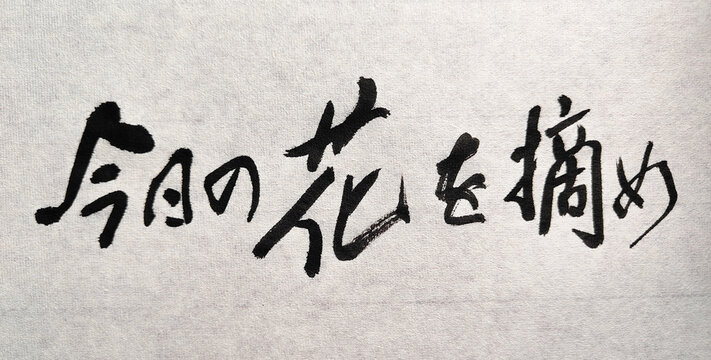 今日の花を摘め